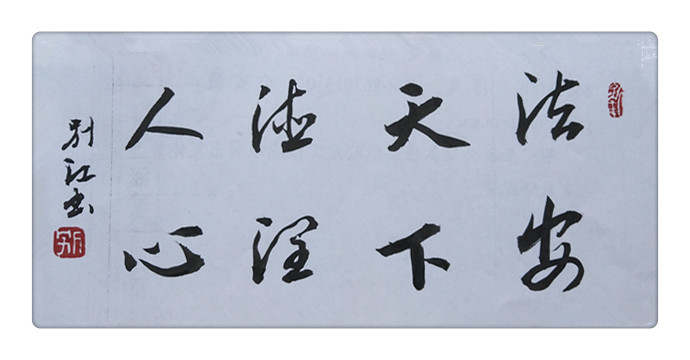 法安
天下
德润
人心
别江书